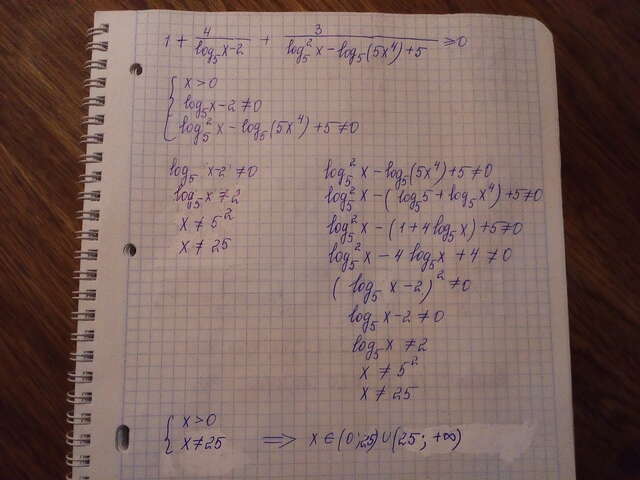 1 + 4/(log₅x-2) + 3/(log₅²x - log₅(5x⁴)+5) ≥0
{ x>0
log₅x-2≠0
log₅²x - log₅(5x⁴)+5≠0
log₅ x-2≠0
log₅x≠2
x≠5²
x≠25
log₅²x - log₅(5x⁴)+5≠0
log₅²x - (log₅5 + log₅x⁴)+5≠0
log₅²x - (1+4log₅x)+5≠0
log₅²x - 4log₅x + 4≠0
(log₅ x-2)² ≠0
log₅x-2≠0
log₅x ≠2
x ≠5²
x ≠25
{ x>0
x≠25 ⟹ x∈(0;25)∪(25; +∞)